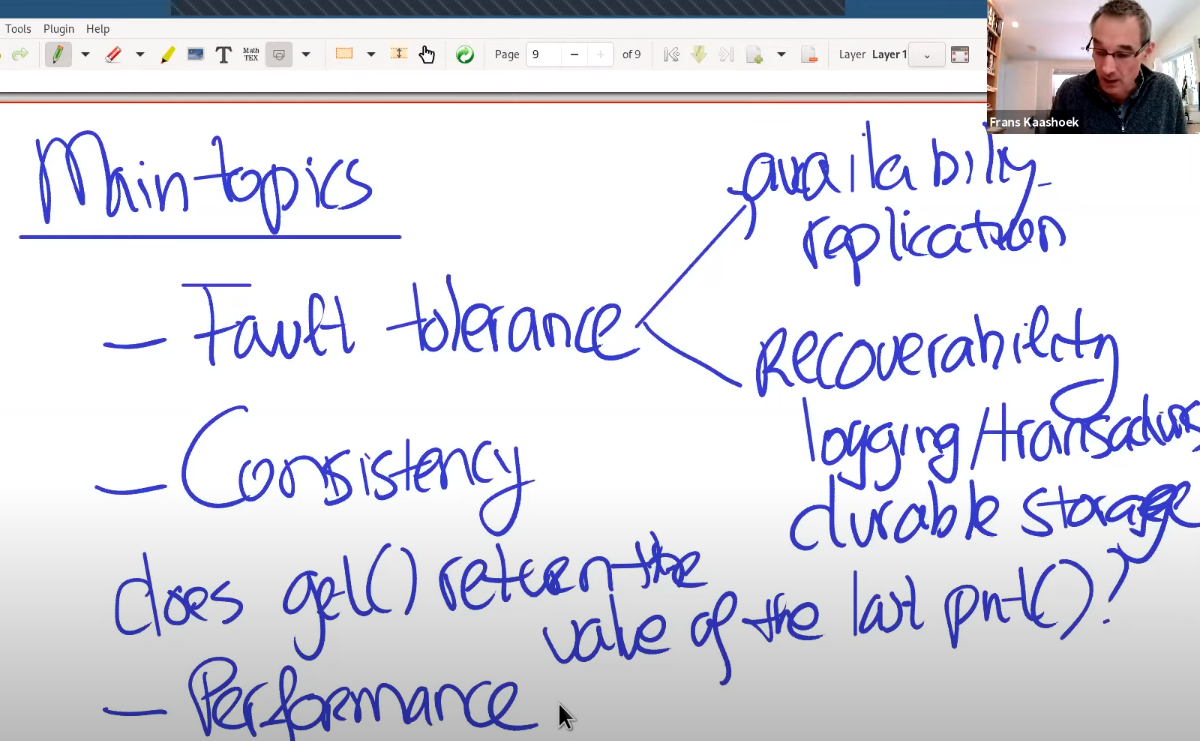 Tools Plugin Help
T Math TEX Page 9 − + of 9 Layer Layer 1
Frans Kaashoek
Main topics
availability
replication
– Fault tolerance
Recoverability
logging/transactions
durable storage
– Consistency
does get() return the
value of the last put()?
– Performance